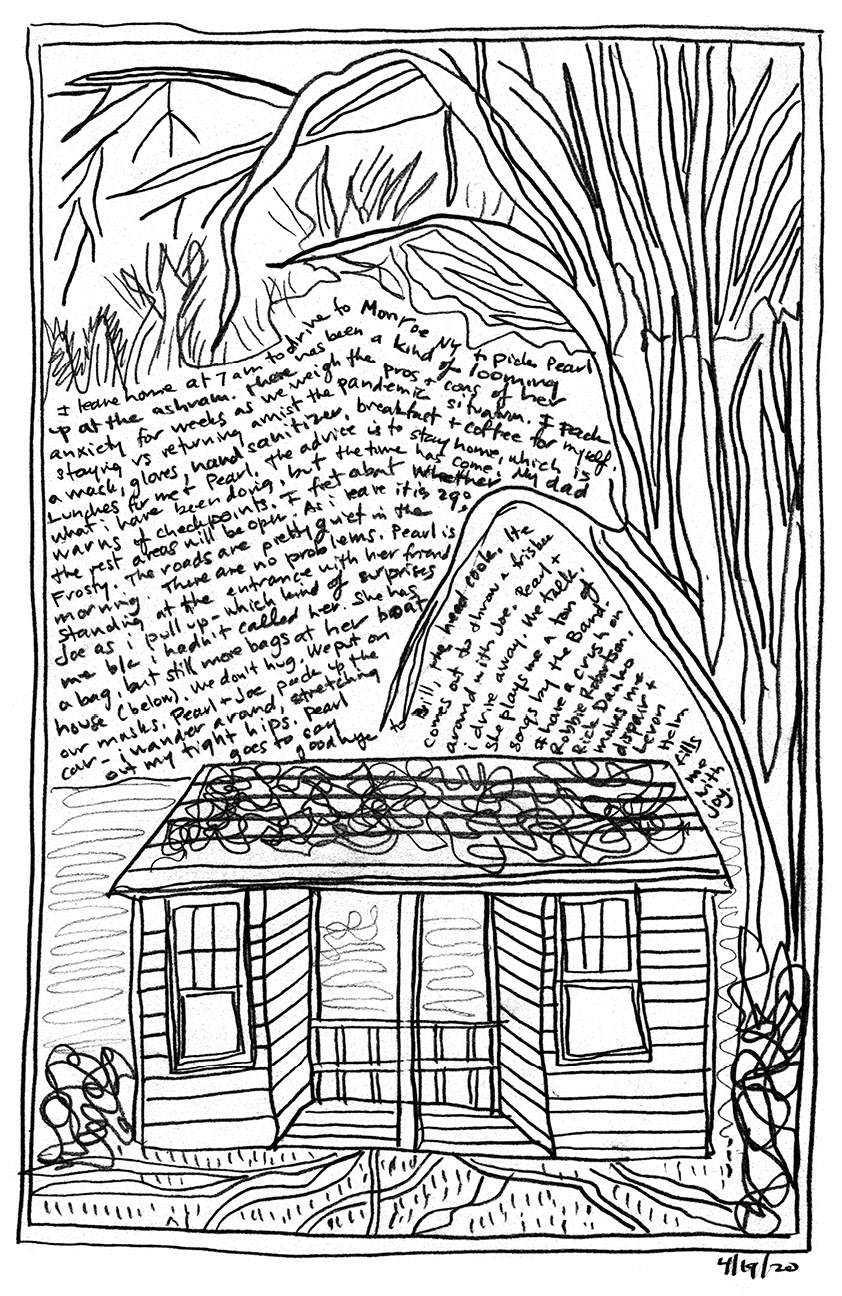 I leave home at 7am to drive to Monroe Ny to pick Pearl
up at the ashram. There has been a kind of looming
anxiety for weeks as we weigh the pros + cons of her
staying vs returning amist the pandemic situation. I pack
a mask, gloves, hand sanitizer, breakfast + coffee for myself.
Lunches for me + Pearl. The advice is to stay home, which is
what i have been doing, but the time has come. My dad
warns of checkpoints. I fret about whether
the rest areas will be open. As i leave it is 29°
Frosty. The roads are pretty quiet in the
morning. There are no problems. Pearl is
standing at the entrance with her friend
Joe as i pull up - which kind of surprises
me b/c i hadn't called her. She has
a bag, but still more bags at her boat
house (below). We don't hug. We put on
our masks. Pearl + Joe pack up the
car - i wander around, stretching
out my tight hips. Pearl
goes to say
goodbye
to Bill, the head cook. He
comes out to throw a frisbee
around with Joe. Pearl +
i drive away. We talk.
She plays me a ton of
songs by the Band.
I have a crush on
Robbie Robertson.
Rick Danko
makes me
dispair +
Levon Helm
fills
me
with
joy.
4/19/20